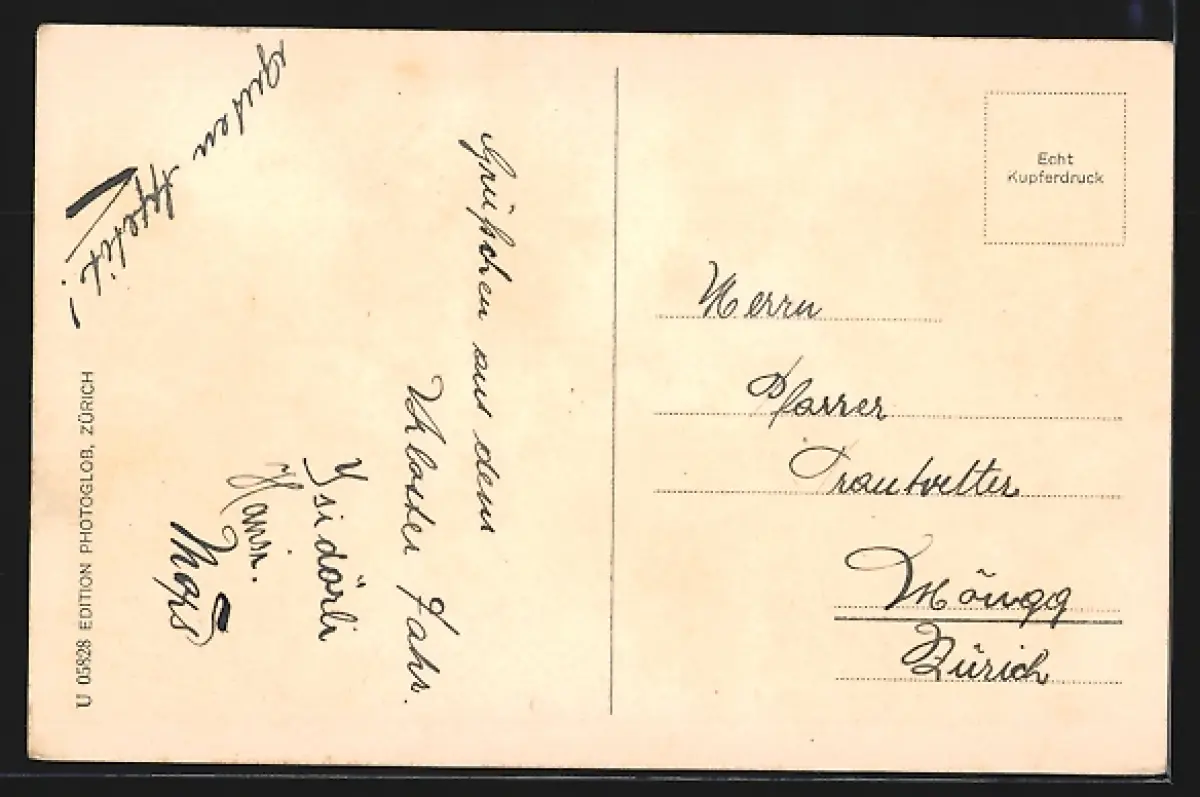 Guten Appetit!
Grüßchen aus dem
Kloster Fahr.
Ysidörli
Hansr.
U 05828 EDITION PHOTOGLOB, ZÜRICH
Echt
Kupferdruck
Herrn
Pfarrer
Trautvetter
Höngg
Zürich